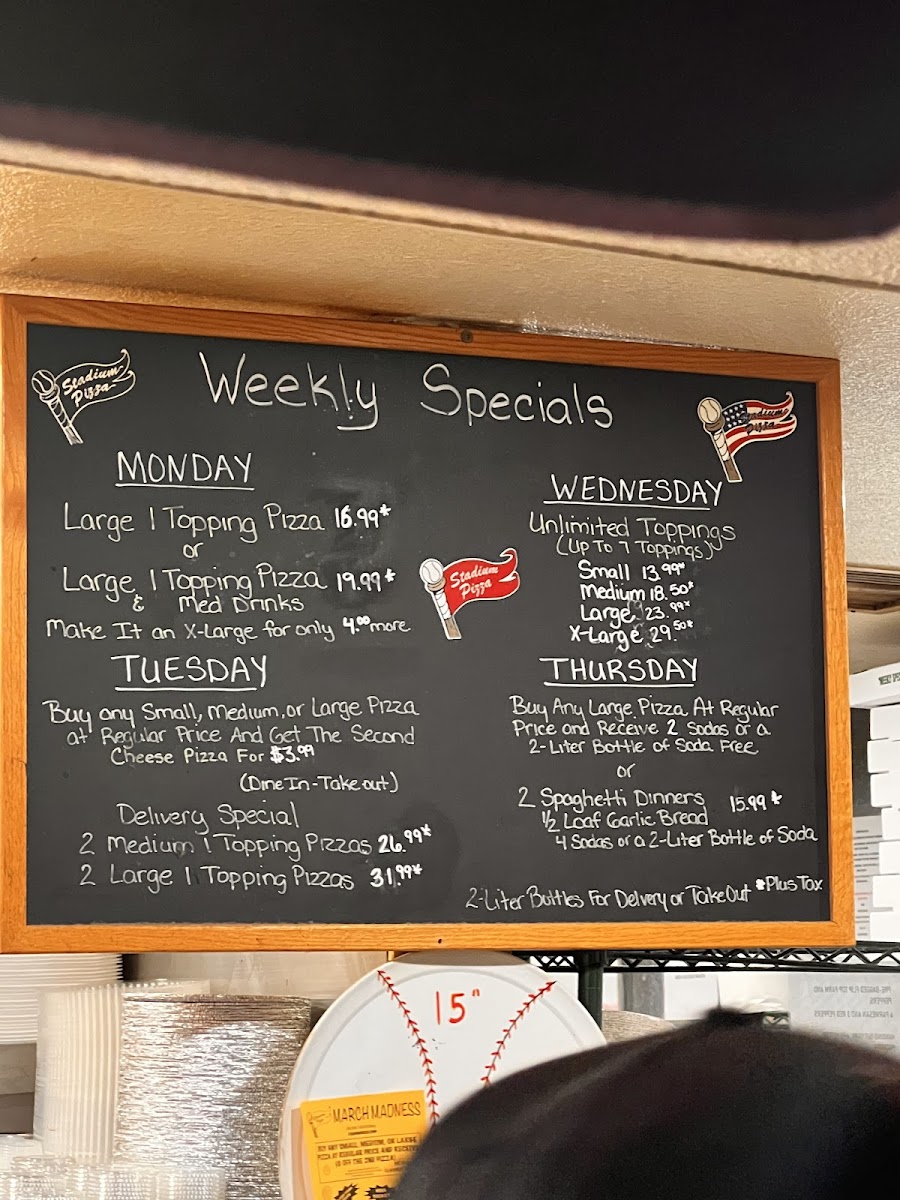 Weekly Specials
Stadium
Pizza
Stadium
Pizza
MONDAY
Large 1 Topping Pizza 16.99*
or
Large 1 Topping Pizza 19.99*
& Med Drinks
Make It an X-Large for only 4.00 more
Stadium
Pizza
TUESDAY
Buy any Small, Medium, or Large Pizza
at Regular Price And Get The Second
Cheese Pizza For $3.99
(Dine In-Take out)
Delivery Special
2 Medium 1 Topping Pizzas 26.99*
2 Large 1 Topping Pizzas 31.99*
WEDNESDAY
Unlimited Toppings
(Up To 7 Toppings)
Small 13.99*
Medium 18.50*
Large 23.99*
X-Large 29.50*
THURSDAY
Buy Any Large Pizza At Regular
Price and Receive 2 Sodas or a
2-Liter Bottle of Soda Free
or
2 Spaghetti Dinners 15.99*
1/2 Loaf Garlic Bread
4 Sodas or a 2-Liter Bottle of Soda
2-Liter Bottles For Delivery or Take Out *Plus Tax
15"
MARCH MADNESS
BUY ANY SMALL, MEDIUM, OR LARGE
PIZZA AT REGULAR PRICE AND RECEIVE
OFF THE 2ND PIZZA!